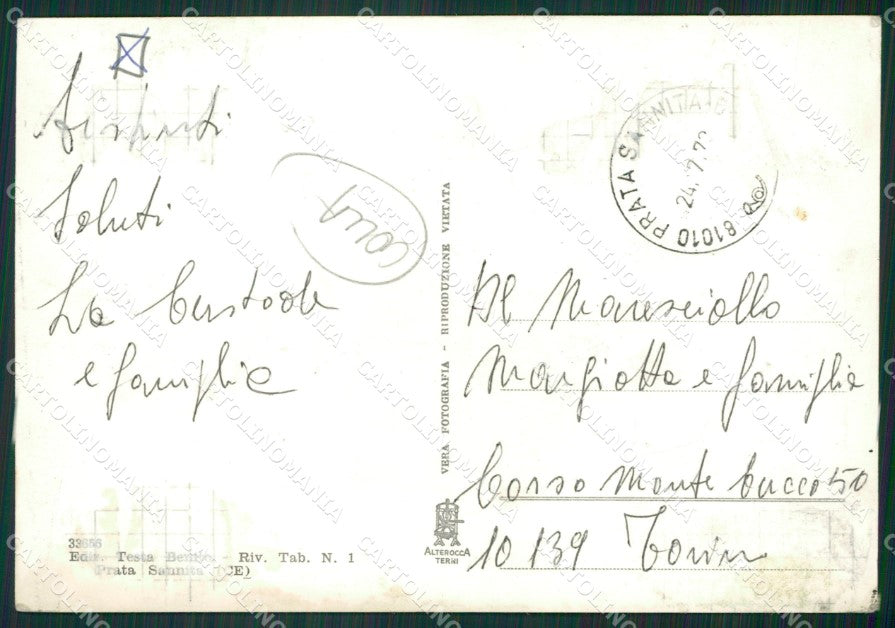 Distinti
Saluti
La Custode
e famiglia
COLLA
33656
Ediz. Testa - Riv. Tab. N. 1
Prata Sannita (CE)
VERA FOTOGRAFIA - RIPRODUZIONE VIETATA
ALTEROCCA
TERNI
81010 PRATA SANNITA
24. 7.7
Al Maresciallo
Margiotta e famiglia
Corso Monte Cucco 50
10139 Torino
CARTOLINOMANIA